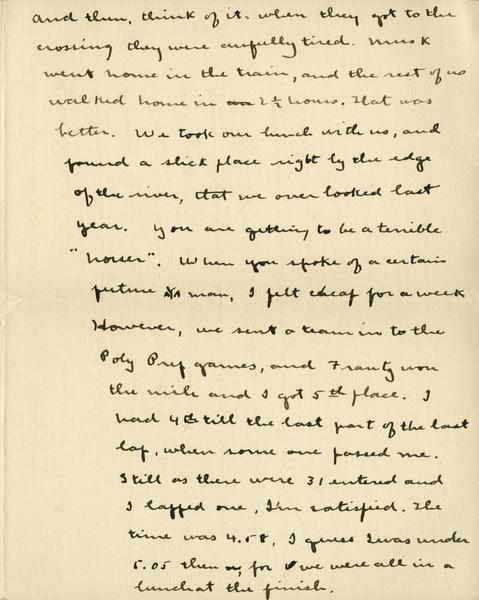 and then, think of it. when they got to the
crossing they were awfully tired. Musk
went home in the train, and the rest of us
walked home in 2½ hours. That was
better. We took our lunch with us, and
found a slick place right by the edge
of the river, that we over looked last
year. You are getting to be a terrible
"horser". When you spoke of a certain
future man, I felt cheap for a week
However, we sent a team in to the
Poly Prep games, and Frantz won
the mile and I got 5th place. I
had 4th till the last part of the last
lap, when some one passed me.
Still as there were 31 entered and
I lapped one, I'm satisfied. The
time was 4.58, I guess I was under
5.05 then, for we were all in a
bunch at the finish.